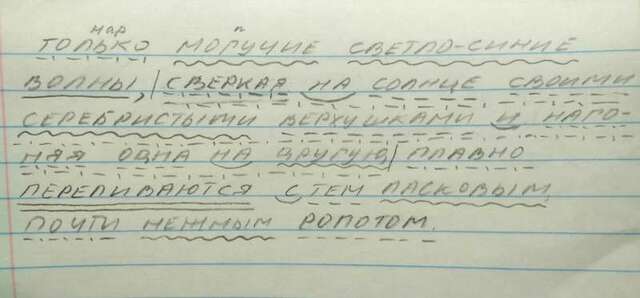 нар п
ТОЛЬКО МОГУЧИЕ СВЕТЛО-СИНИЕ
ВОЛНЫ, СВЕРКАЯ НА СОЛНЦЕ СВОИМИ
СЕРЕБРИСТЫМИ ВЕРХУШКАМИ И НАГО-
НЯЯ ОДНА НА ДРУГУЮ ПЛАВНО
ПЕРЕЛИВАЮТСЯ С ТЕМ ЛАСКОВЫМ,
ПОЧТИ НЕЖНЫМ РОПОТОМ.